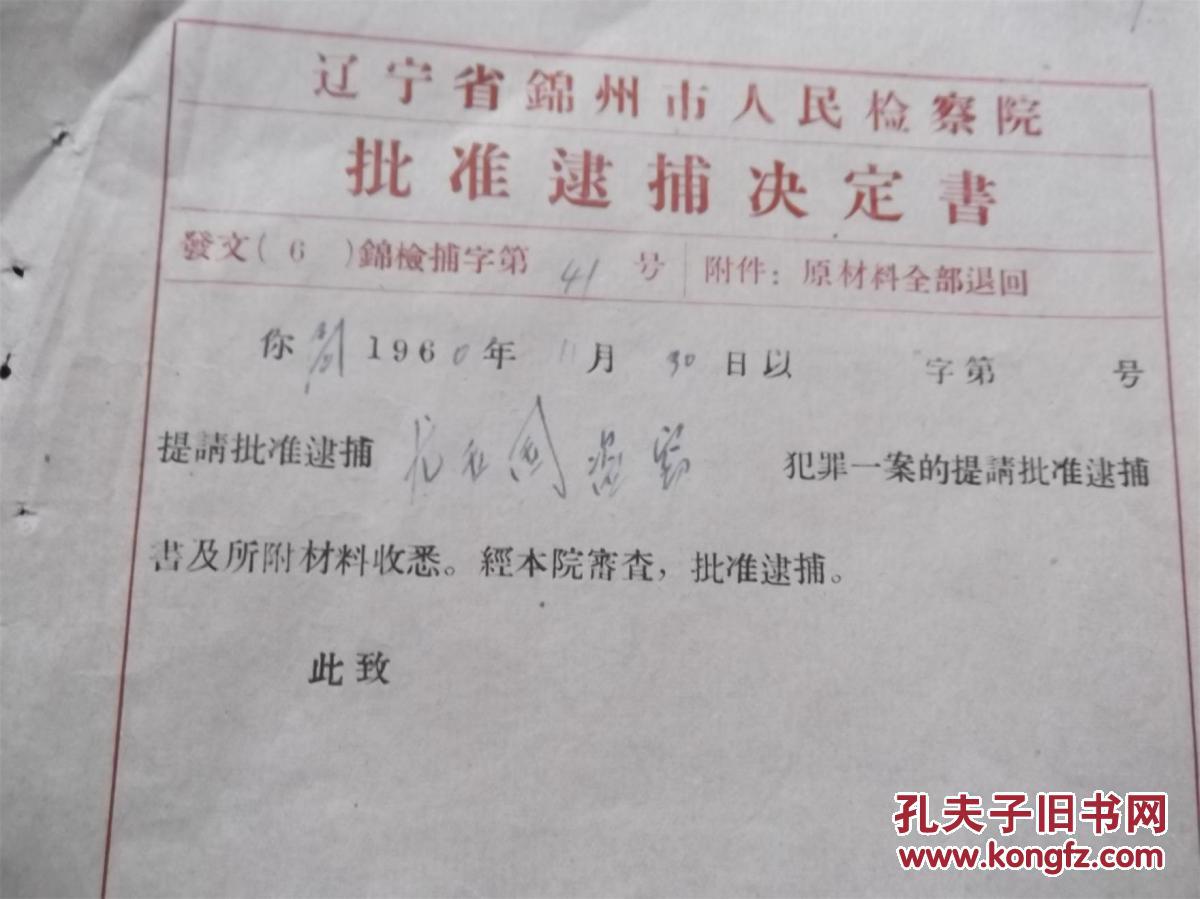 辽宁省錦州市人民检察院
批准逮捕决定書
發文(6 )錦檢捕字第 41 号 附件：原材料全部退回
你 1960年 11月 30日以 字第 号
提請批准逮捕 国盗窃 犯罪一案的提請批准逮捕
書及所附材料收悉。經本院審查，批准逮捕。
此致
孔夫子旧书网
www.kongfz.com